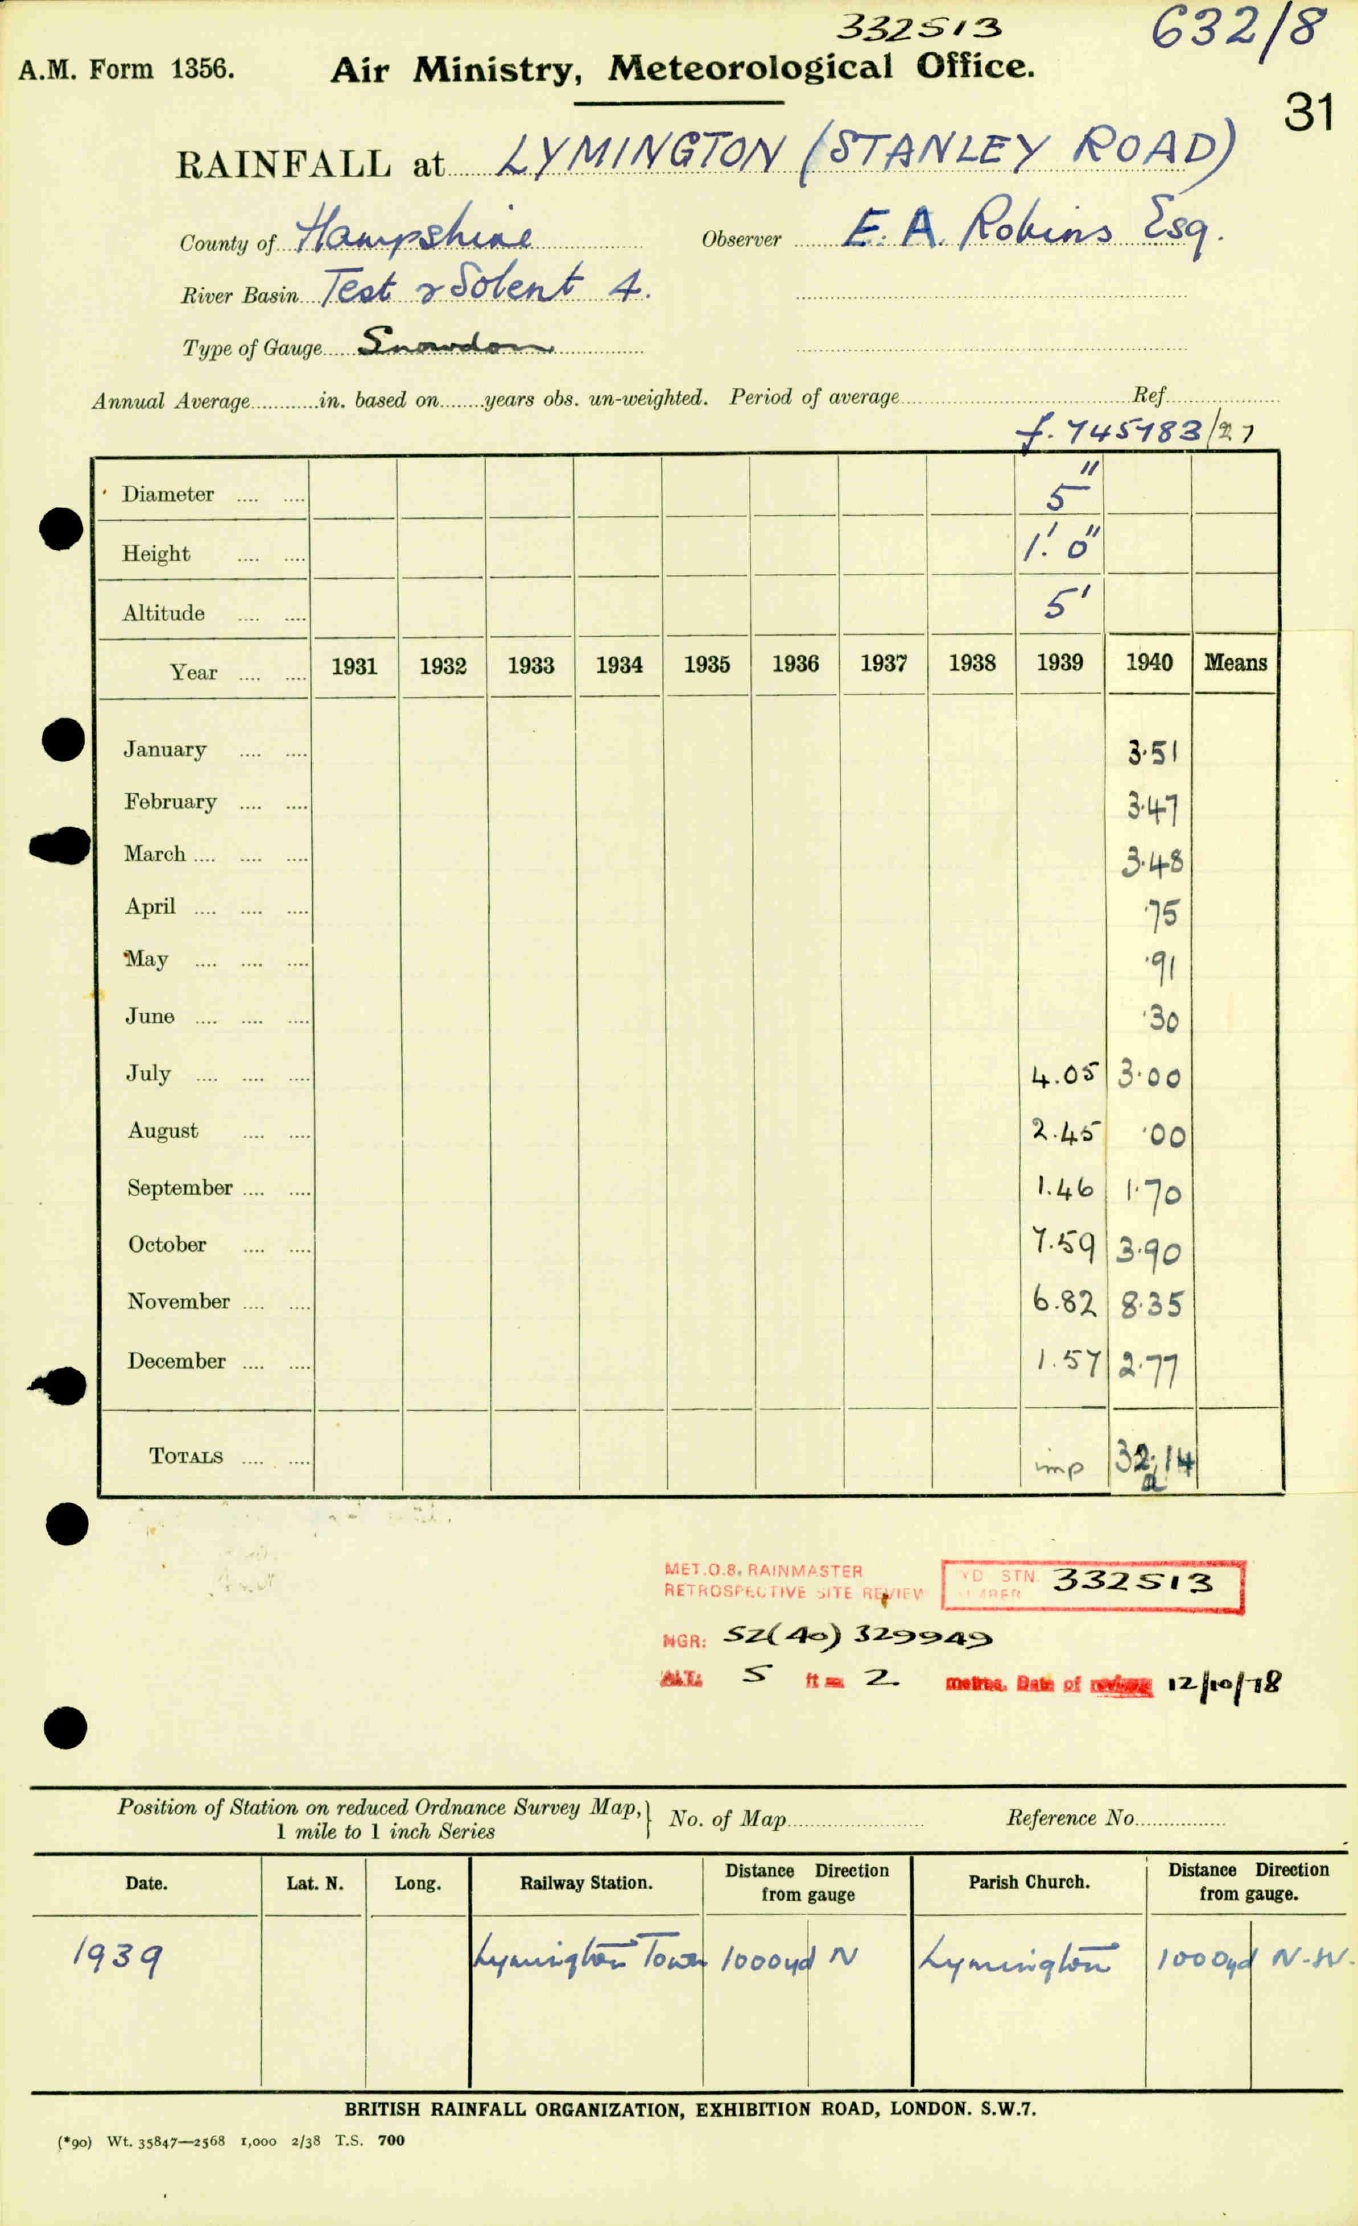 332513
632/8
A.M. Form 1356. Air Ministry, Meteorological Office.
31
RAINFALL at LYMINGTON (STANLEY ROAD)
County of Hampshire Observer E. A. Robins Esq.
River Basin Test & Solent 4.
Type of Gauge Snowdon
Annual Average............in. based on........years obs. un-weighted. Period of average........ Ref........
f. 745783/27
Diameter .... .... 5"
Height .... .... 1' 0"
Altitude .... .... 5'
Year .... .... 1931 1932 1933 1934 1935 1936 1937 1938 1939 1940 Means
January .... .... 3.51
February .... .... 3.47
March .... .... .... 3.48
April .... .... .... .75
May .... .... .... .91
June .... .... .... .30
July .... .... .... 4.05 3.00
August .... .... 2.45 .00
September .... .... 1.46 1.70
October .... .... 7.59 3.90
November .... .... 6.82 8.35
December .... .... 1.57 2.77
TOTALS .... .... imp 32.14
a
MET.O.8. RAINMASTER
RETROSPECTIVE SITE REVIEW
STN. 332513
NGR: SZ(40) 329949
ALT: 5 ft = 2 metres. Date of review 12/10/78
Position of Station on reduced Ordnance Survey Map, } No. of Map........ Reference No........
1 mile to 1 inch Series
Date. Lat. N. Long. Railway Station. Distance Direction from gauge Parish Church. Distance Direction from gauge.
1939 Lymington Town 1000yd N Lymington 1000yd N-W.
BRITISH RAINFALL ORGANIZATION, EXHIBITION ROAD, LONDON. S.W.7.
(*90) Wt. 35847—2568 1,000 2/38 T.S. 700